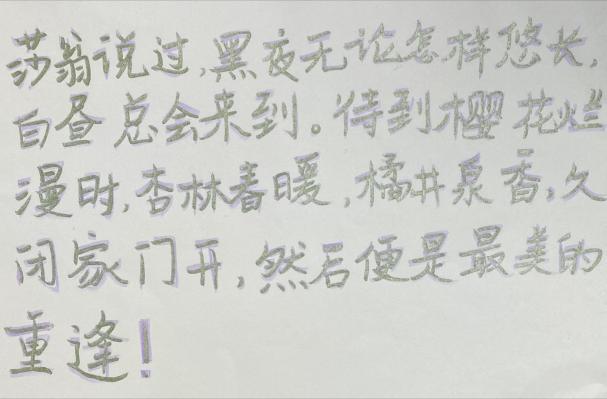 莎翁说过,黑夜无论怎样悠长,
白昼总会来到。待到樱花烂
漫时,杏林春暖,橘井泉香,久
闭家门开,然后便是最美的
重逢!